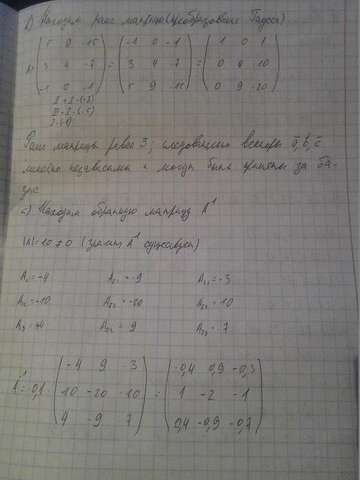 1) Находим ранг матрицы (преобразование Гаусса)
A= (5 9 -15) = (-1 0 -1) = (1 0 1)
(3 4 -7) (3 4 7) (0 4 10)
(-1 0 -1) (5 9 15) (0 9 -20)
Ранг матрицы равен 3, следовательно векторы a, b, c
линейно независимы и могут быть приняты за ба-
зис
2) Находим обратную матрицу A⁻¹
|A|=10 ≠ 0 (значит A⁻¹ существует)
A₁₁ = -4 A₂₁ = -9 A₃₁ = -3
A₁₂ = -10 A₂₂ = -20 A₃₂ = 10
A₁₃ = 4 A₂₃ = 9 A₃₃ = 7
A⁻¹ = 0,1 · (-4 9 3) = (-0,4 0,9 -0,3)
(10 -20 -10) (1 -2 -1)
(4 -9 7) (0,4 -0,9 -0,7)